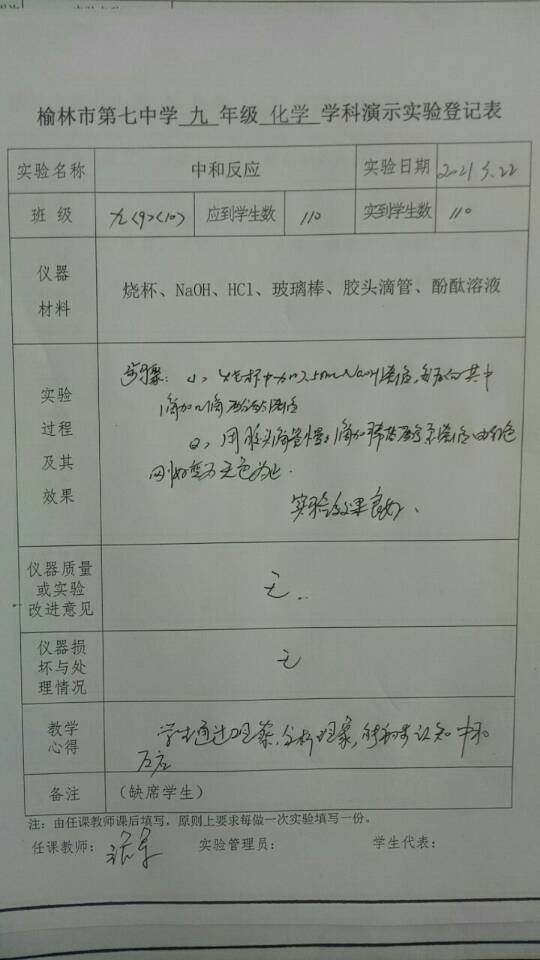 榆林市第七中学 九 年级 化学 学科演示实验登记表
实验名称 中和反应 实验日期 2021.5.22
班 级 九(9)(10) 应到学生数 110 实到学生数 110
仪器
材料
烧杯、NaOH、HCl、玻璃棒、胶头滴管、酚酞溶液
实验
过程
及其
效果
步骤: 1、烧杯中加入5mLNaOH溶液,然后向其中
滴加几滴酚酞溶液
2、用胶头滴管慢慢滴加稀盐酸至溶液由红色
刚好变为无色为止.
实验效果良好.
仪器质量
或实验
改进意见
无.
仪器损
坏与处
理情况
无
教学
心得
学生通过观察,分析现象,能初步认知中和
反应
备注 (缺席学生)
注:由任课教师课后填写,原则上要求每做一次实验填写一份。
任课教师: 实验管理员: 学生代表: